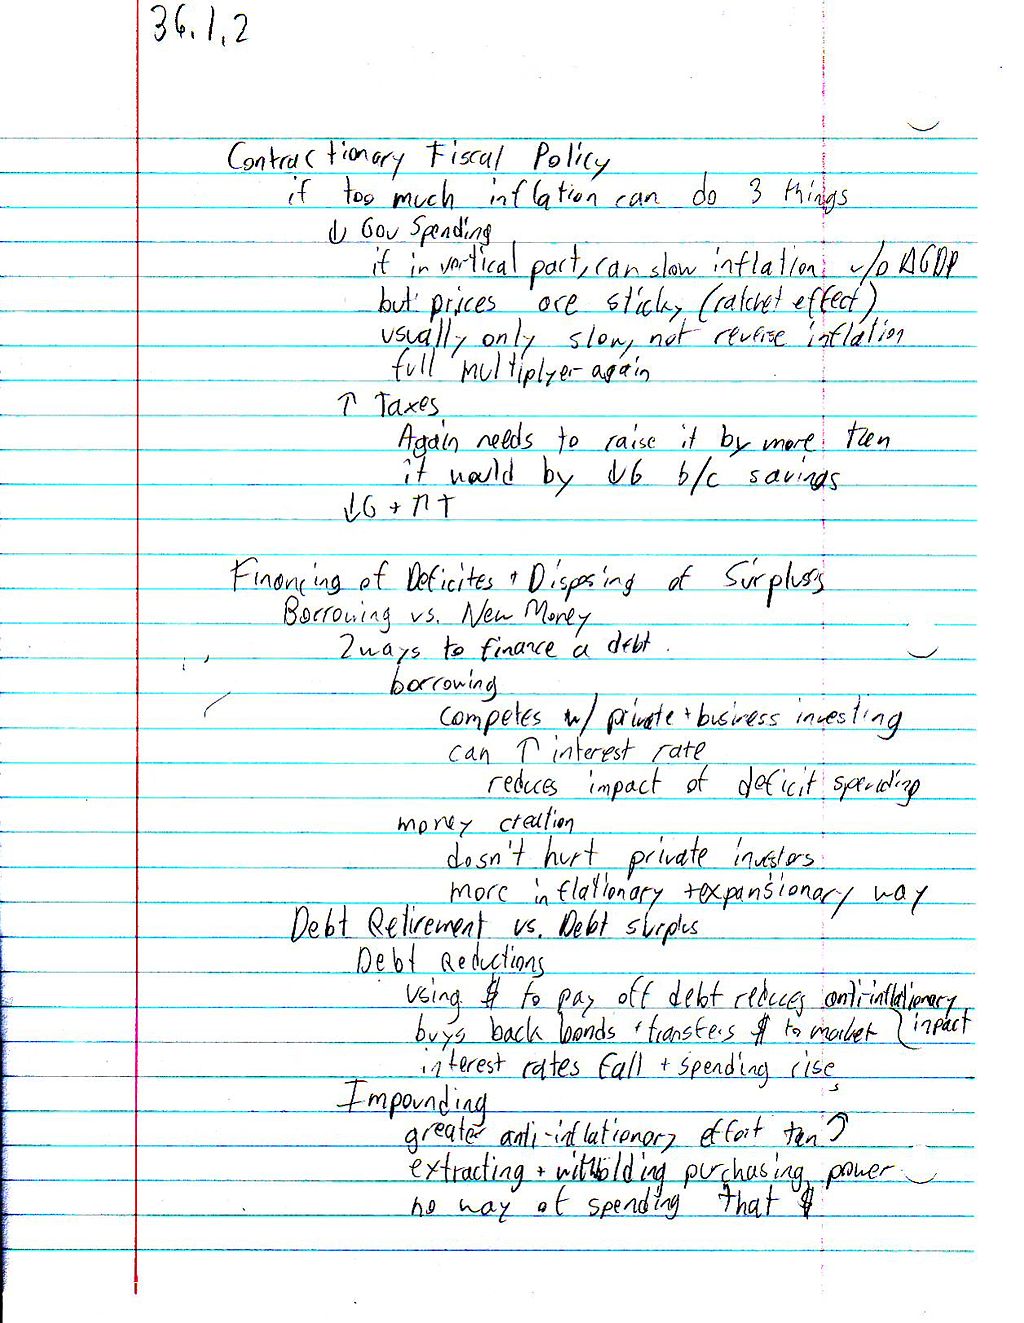 36.1.2
Contractionary Fiscal Policy
if too much inflation can do 3 things
↓ Gov Spending
if in vertical part, can slow inflation w/o ΔGDP
but prices are sticky (ratchet effect)
usually only slow, not reverse inflation
full multiplyer again
↑ Taxes
Again needs to raise it by more then
it would by ↓G b/c savings
↓G + ↑T
Financing of Deficites + Disposing of Surpluss
Borrowing vs. New Money
2 ways to finance a debt
borrowing
competes w/ private + business investing
can ↑ interest rate
reduces impact of deficit spending
money creation
dosn't hurt private investors
more inflationary + expansionary way
Debt Retirement vs. Debt surplus
Debt Reductions
using $ to pay off debt reduces anti-inflationary
buys back bonds + transfers $ to market } inpact
interest rates fall + spending rises
Impounding
greater anti-inflationary effort tan ↑
extracting + witholding purchasing power
no way of spending that $